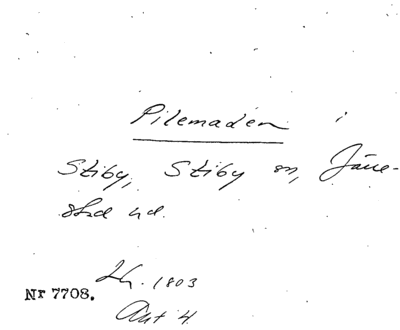 Pilemaden i
Stiby, Stiby sn, Järre-
stad hd.
Lh. 1803
Nr 7708.
Akt 4